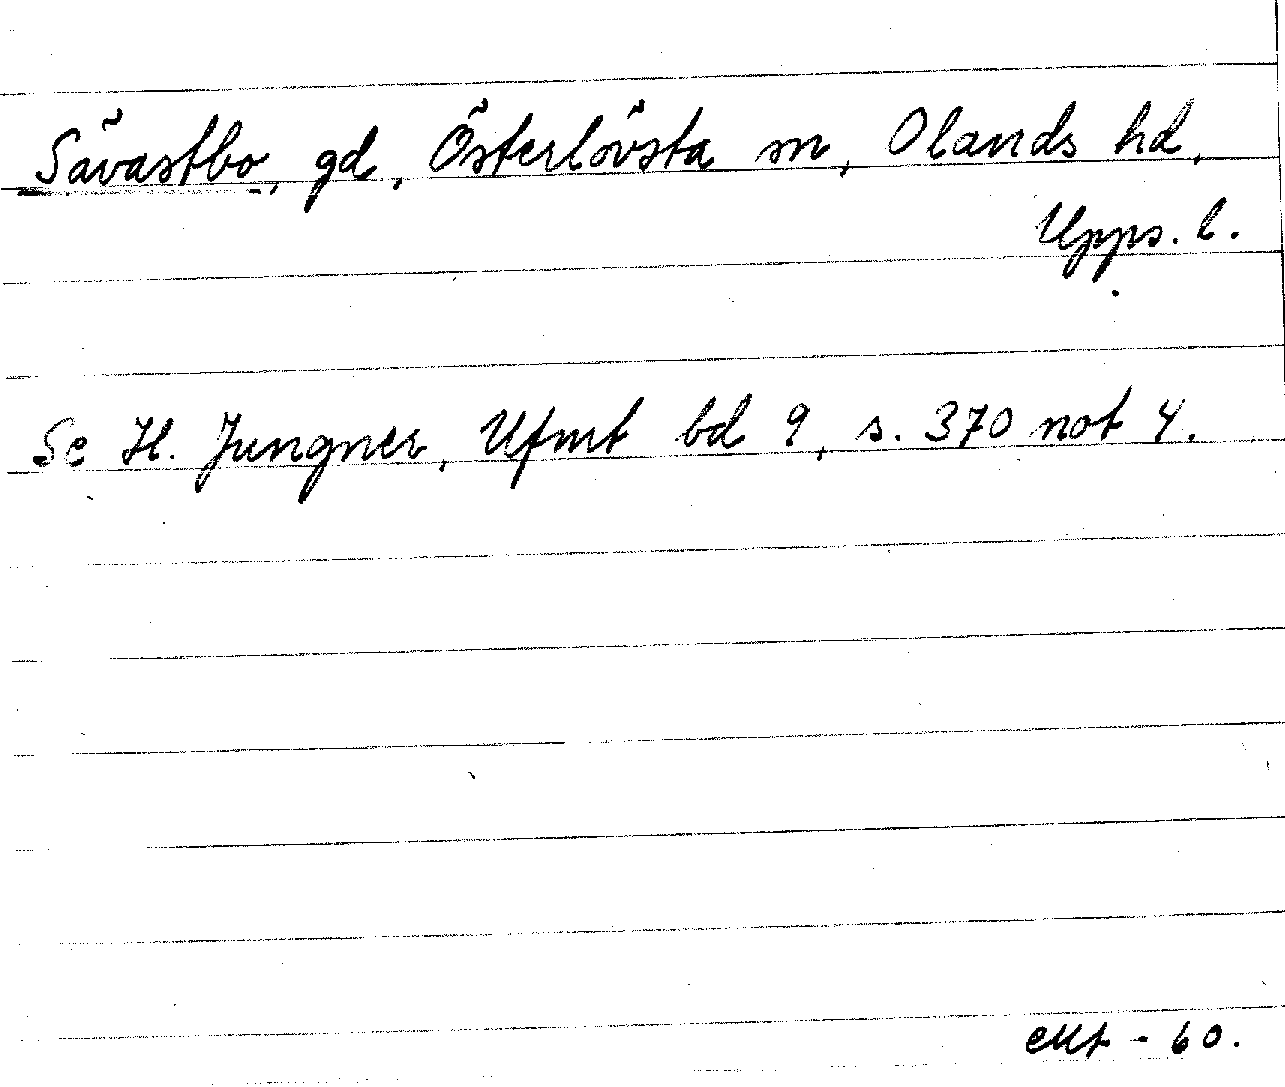 Sävastbo, gd, Österlövsta sn, Olands hd,
Upps. l.
Se H. Jungner, Ufmt bd 9, s. 370 not 4.
- 60.